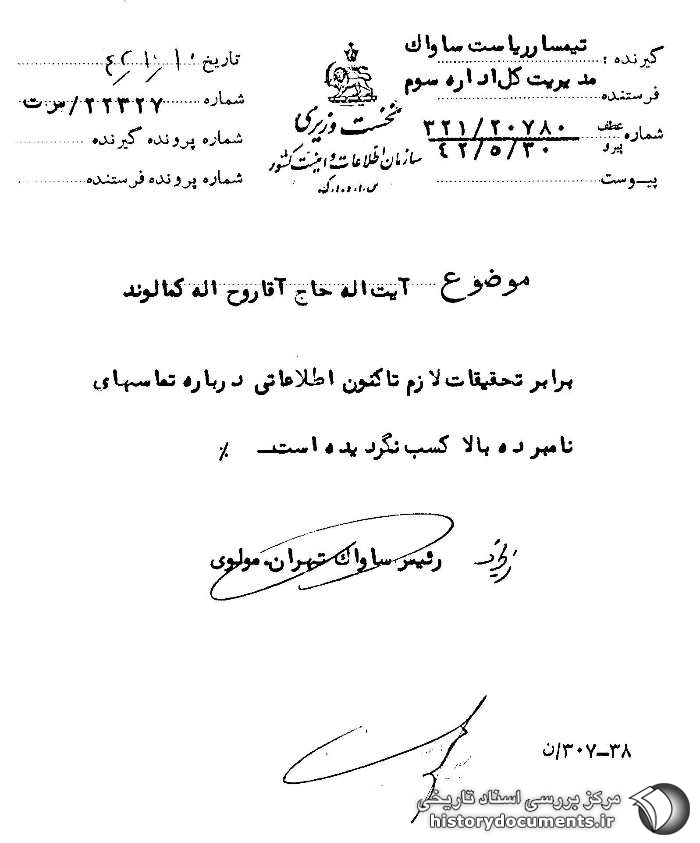 گیرنده : تیمسار ریاست ساواک
مدیریت کل اداره سوم
فرستنده
شماره عطف پیرو ۳۲۱/۲۰۷۸۰
۴۲/۵/۳۰
پیوست
نخست وزیری
سازمان اطلاعات و امنیت کشور
تاریخ
شماره ۲۲۳۲۷/س ت
شماره پرونده گیرنده
شماره پرونده فرستنده
موضوع آیت اله حاج آقا روح اله کمالوند
برابر تحقیقات لازم تاکنون اطلاعاتی درباره تماسهای
نامبرده بالا کسب نگردیده است ٪
رئیس ساواک تهران. مولوی
۳۰۷-۳۸/ن
مرکز بررسی اسناد تاریخی
historydocuments.ir